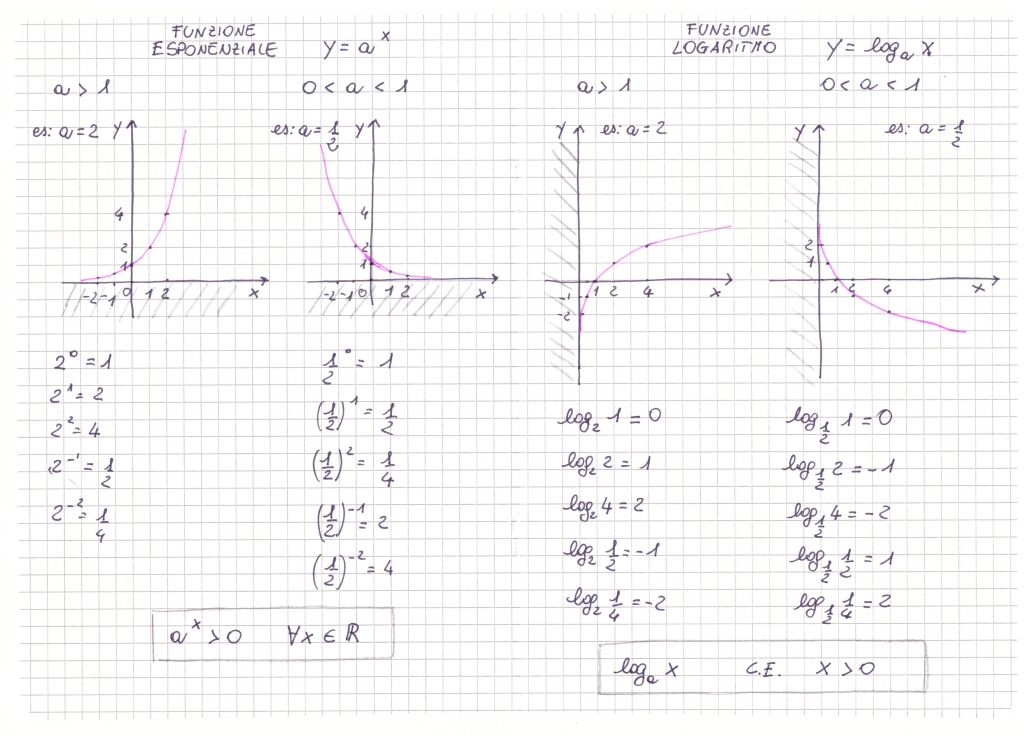 FUNZIONE
ESPONENZIALE y = a^x
a > 1
0 < a < 1
es: a = 2 y
4
2
1
-2 -1 0 1 2 x
es: a = 1/2 y
4
2
1
-2 -1 0 1 2 x
2^0 = 1
2^1 = 2
2^2 = 4
2^-1 = 1/2
2^-2 = 1/4
1/2^0 = 1
(1/2)^1 = 1/2
(1/2)^2 = 1/4
(1/2)^-1 = 2
(1/2)^-2 = 4
a^x > 0 ∀x ∈ ℝ
FUNZIONE
LOGARITMO y = log_a x
a > 1
0 < a < 1
y es: a = 2
1 2 4 x
-1
-2
y es: a = 1/2
2
1
1 2 4 x
log_2 1 = 0
log_2 2 = 1
log_2 4 = 2
log_2 1/2 = -1
log_2 1/4 = -2
log_1/2 1 = 0
log_1/2 2 = -1
log_1/2 4 = -2
log_1/2 1/2 = 1
log_1/2 1/4 = 2
log_a x C.E. x > 0